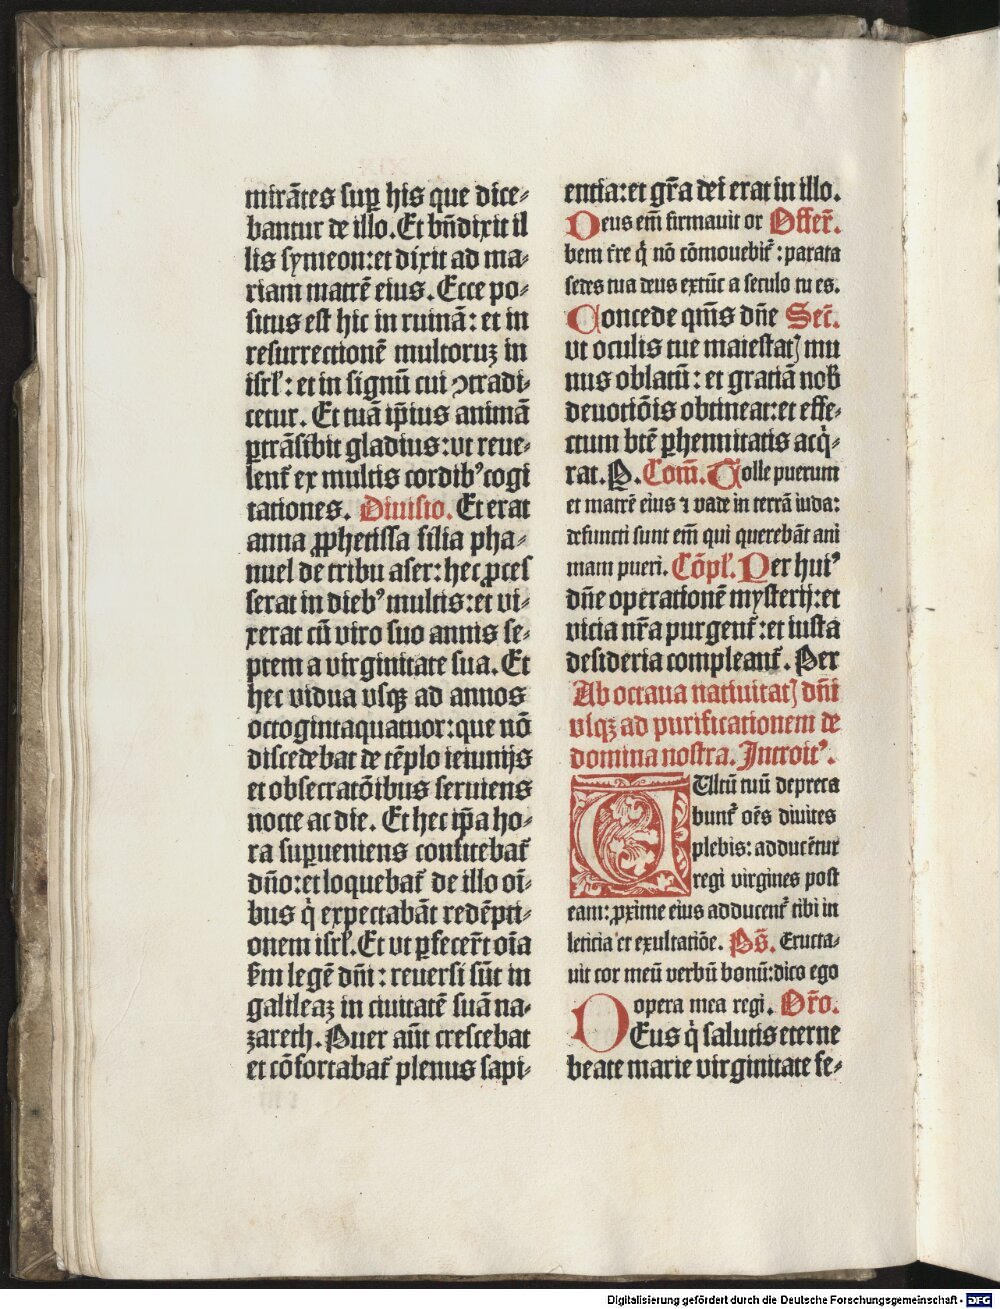 mirātes suꝑ his que dice⸗
bantur de illo. Et bñdixit il
lis symeon: et dixit ad ma⸗
riam matrē eius. Ecce po⸗
situs est hic in ruinā: et in
resurrectionē multoruꝫ in
isrl̄: et in signū cui ꝯtradi⸗
cetur. Et tuā ip̄ius animā
ꝑtrāsibit gladius: vt reue⸗
lent᷑ ex multis cordibꝰ cogi
tationes. Diuisio. Et erat
anna ꝓphetissa filia pha⸗
nuel de tribu aser: hec ꝓces
serat in diebꝰ multis: et vi⸗
xerat cū viro suo annis se⸗
ptem a virginitate sua. Et
hec vidua vsqꝫ ad annos
octogintaquatuor: que nō
discedebat de tēplo ieiunijs
et obsecratōibus seruiens
nocte ac die. Et hec ip̄a ho⸗
ra suꝑueniens confitebat᷑
dño: et loquebat᷑ de illo oī⸗
bus q̇ expectabāt redēpti⸗
onem isrl̄. Et vt ꝑfecer̄t oīa
ẜm legē dñi: reuersi sūt in
galileaꝫ in ciuitatē suā na⸗
zareth. Puer aūt crescebat
et cōfortabat᷑ plenus sapi⸗
entia: et gr̄a dei erat in illo.
Deus em̄ firmauit or Offer̄.
bem t̄re q̇ nō cōmouebit᷑: parata
sedes tua deus extūc a seculo tu es.
Concede qm̄s dñe Secr̄.
vt oculis tue maiestatꝭ mu
nus oblatū: et gratiā nob̄
deuotiōis obtineat: et effe⸗
ctum btē ꝑhennitatis acq̇⸗
rat. P. Com̄. Tolle puerum
et matrē eius ⁊ vade in terrā iuda:
defuncti sunt em̄ qui querebāt ani
mam pueri. Cōpl̄. Per huiꝰ
dñe operationē mysterij: et
vicia nr̄a purgent᷑: et iusta
desideria compleant᷑. Per
Ab octaua natiuitatꝭ dñi
vsqꝫ ad purificationem de
domina nostra. Introitꝰ.
Vltū tuū depreca
bunt᷑ oēs diuites
plebis: adducētur
regi virgines post
eam: ꝓxime eius adducent᷑ tibi in
leticia et exultatiōe. Ps̄. Eructa⸗
uit cor meū verbū bonū: dico ego
opera mea regi. Or̄o.
DEus q̇ salutis eterne
beate marie virginitate fe⸗
Digitalisierung gefördert durch die Deutsche Forschungsgemeinschaft - DFG